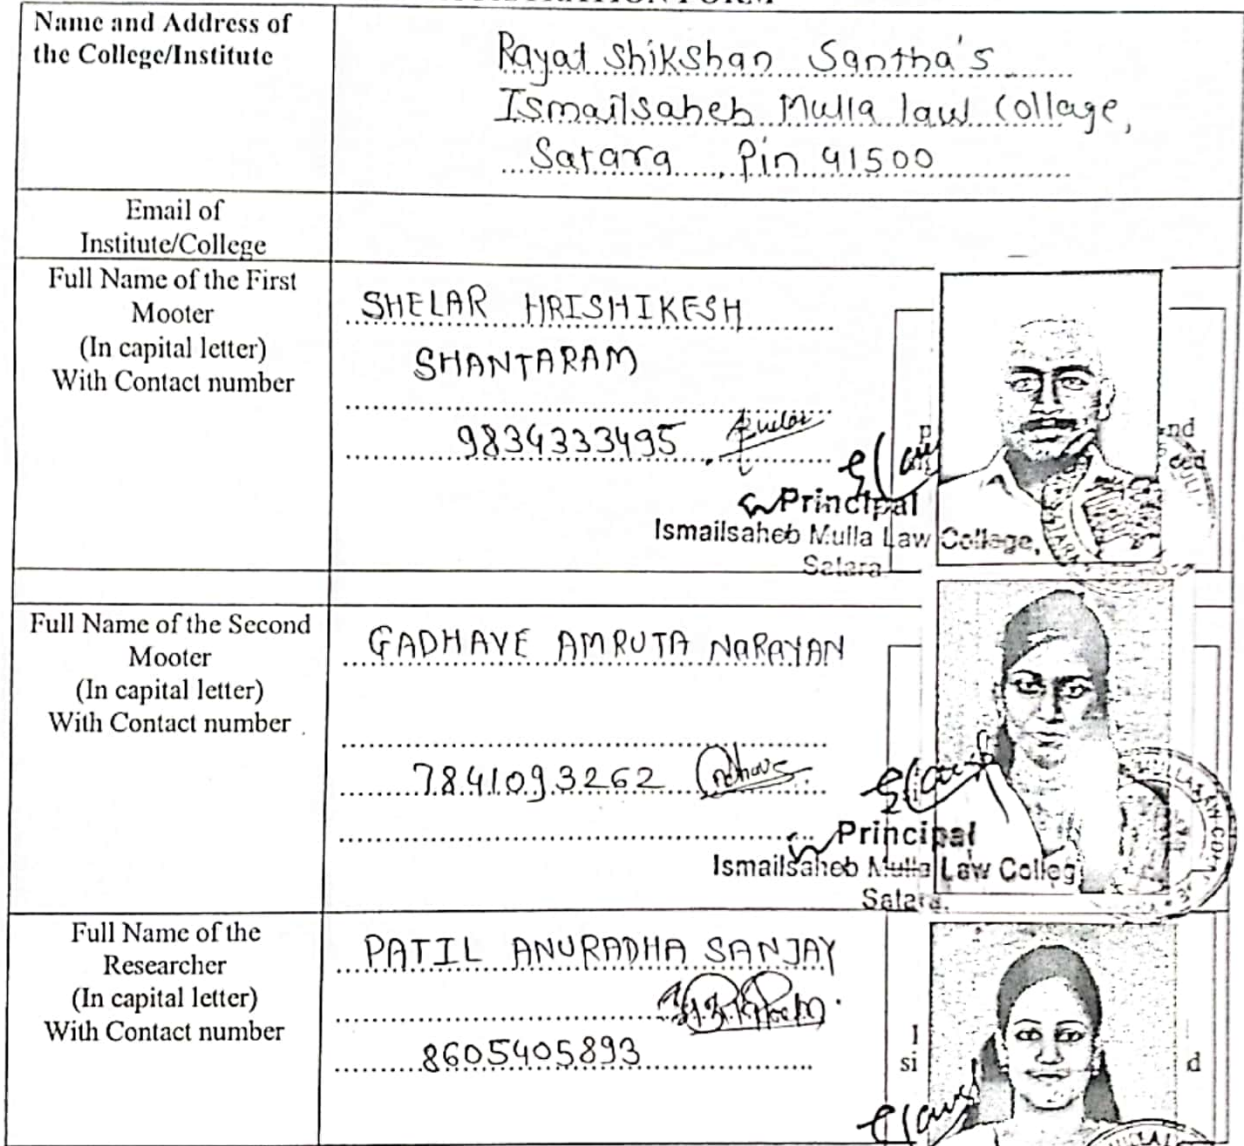 Name and Address of
the College/Institute
Rayat Shikshan Santha's
Ismailsaheb Mulla law Collage,
Satara Pin 41500
Email of
Institute/College
Full Name of the First
Mooter
(In capital letter)
With Contact number
SHELAR HRISHIKESH
SHANTARAM
9834333495
Principal
Ismailsaheb Mulla Law College,
Satara
Full Name of the Second
Mooter
(In capital letter)
With Contact number
GADHAVE AMRUTA NARAYAN
7841093262
Principal
Ismailsaheb Mulla Law Colleg
Satara.
Full Name of the
Researcher
(In capital letter)
With Contact number
PATIL ANURADHA SANJAY
8605405893